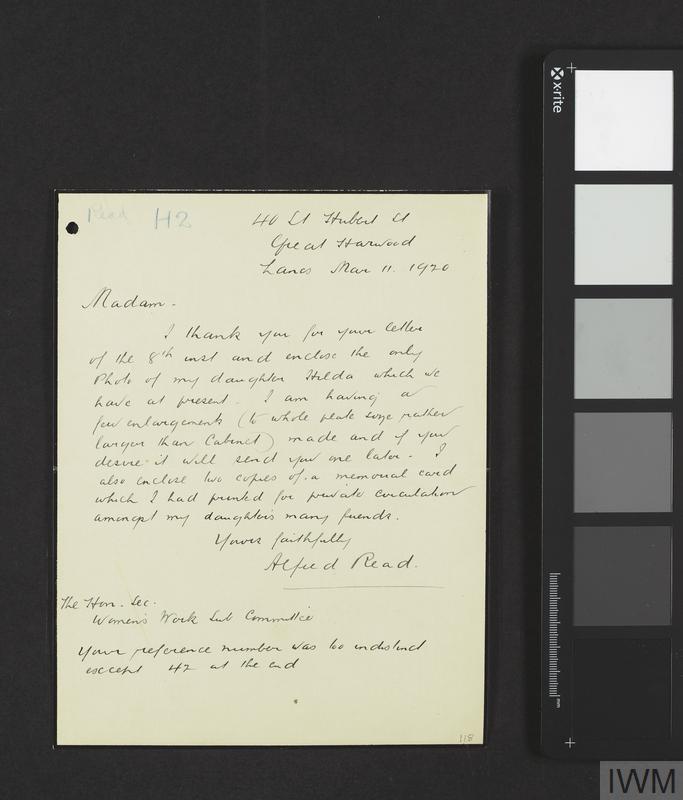 Read H2
40 St Hubert St
Great Harwood
Lancs Mar 11. 1920
Madam -
I thank you for your letter
of the 8th inst and enclose the only
Photo of my daughter Hilda which we
have at present. I am having a
few enlargements (to whole plate size rather
larger than Cabinet) made and if you
desire it will send you one later. I
also enclose two copies of a memorial card
which I had printed for private circulation
amongst my daughter's many friends.
Yours faithfully
Alfred Read.
The Hon. Sec.
Women's Work Sub Committee
Your reference number was too indistinct
except 42 at the end
118
x-rite
mm
IWM